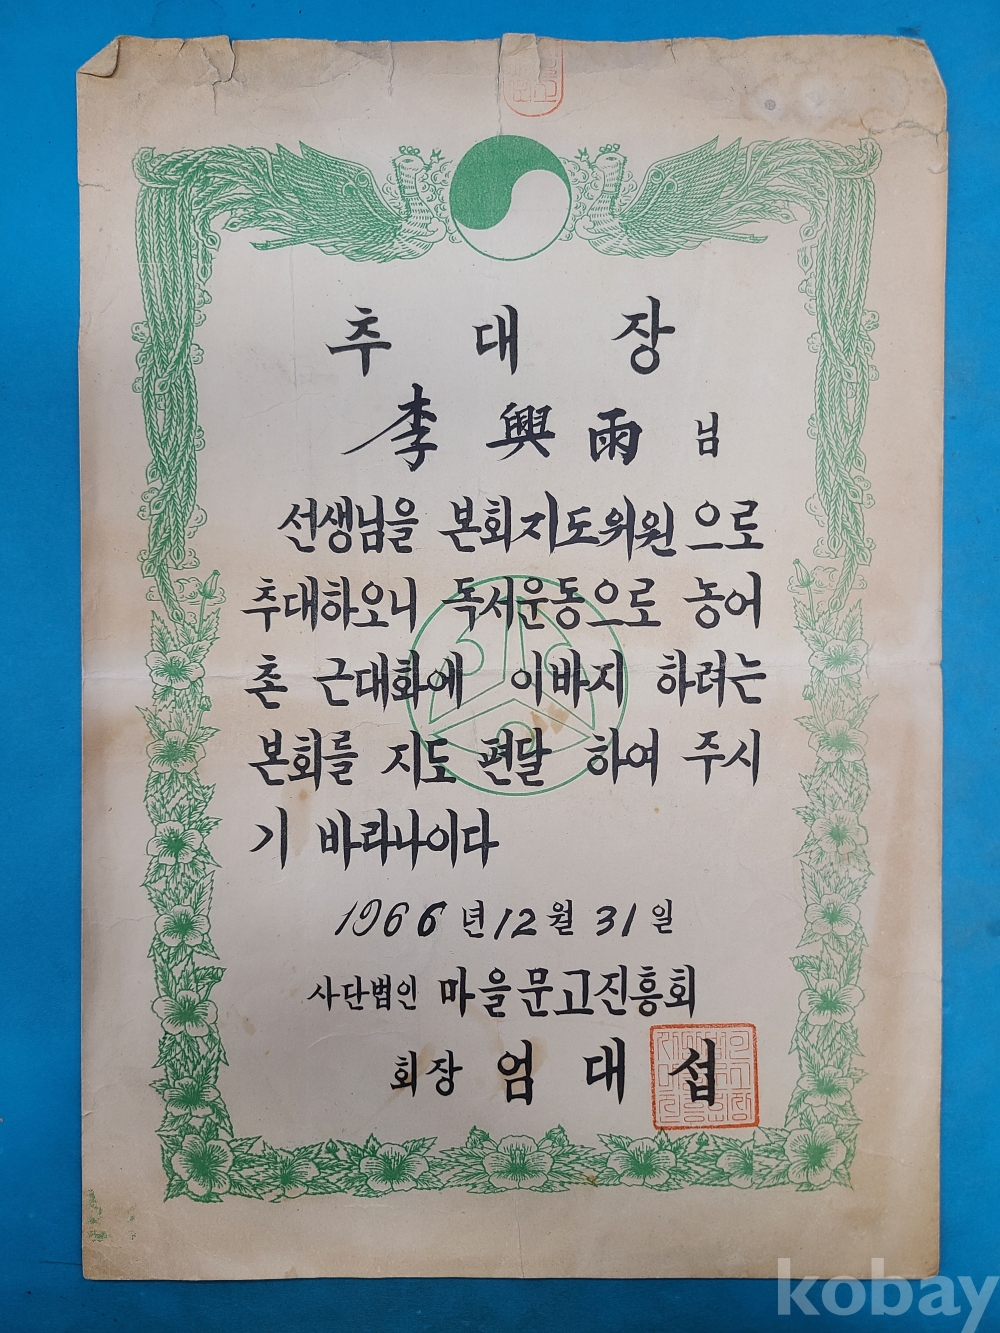 추 대 장
李 興 雨 님
선생님을 본회지도위원으로
추대하오니 독서운동으로 농어
촌 근대화에 이바지 하려는
본회를 지도 편달 하여 주시
기 바라나이다
1966년 12월 31일
사단법인 마을문고진흥회
회장 엄 대 섭
kobay